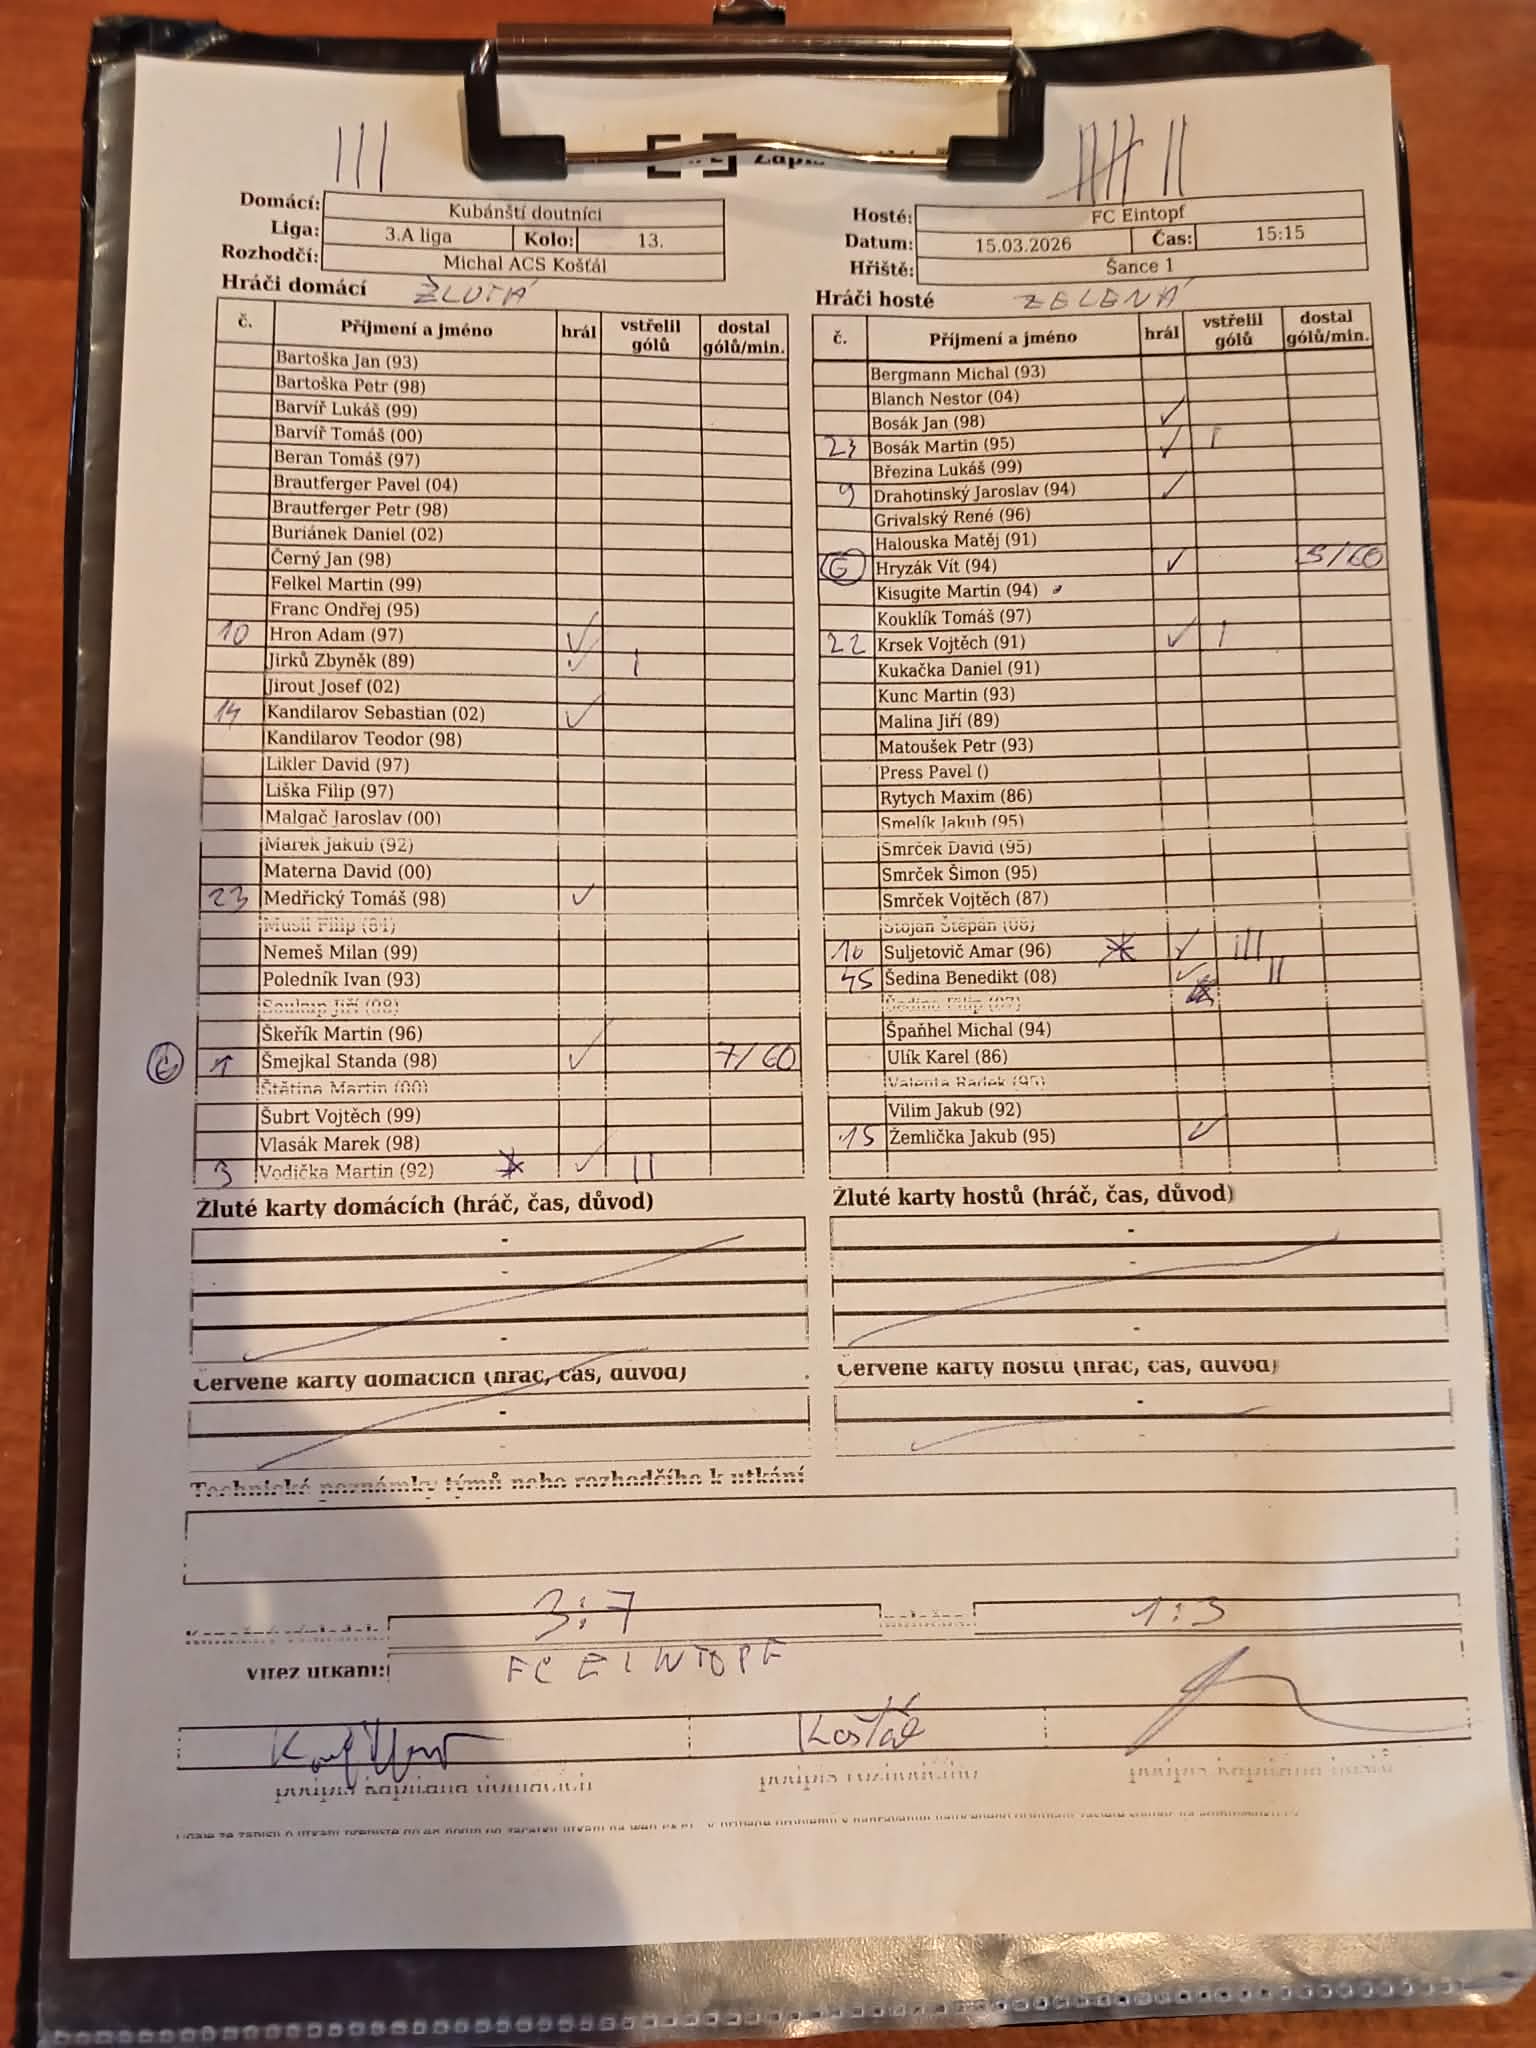 Zápis
Domácí: Kubánští doutníci
Liga: 3.A liga Kolo: 13.
Rozhodčí: Michal ACS Košťál
Hosté: FC Eintopf
Datum: 15.03.2026 Čas: 15:15
Hřiště: Šance 1
Hráči domácí ŽLUTÁ
č. Příjmení a jméno hrál vstřelil gólů dostal gólů/min.
Bartoška Jan (93)
Bartoška Petr (98)
Barvíř Lukáš (99)
Barvíř Tomáš (00)
Beran Tomáš (97)
Brautferger Pavel (04)
Brautferger Petr (98)
Buriánek Daniel (02)
Černý Jan (98)
Felkel Martin (99)
Franc Ondřej (95)
10 Hron Adam (97) ✓
Jirků Zbyněk (89) ✓ I
Jirout Josef (02)
14 Kandilarov Sebastian (02) ✓
Kandilarov Teodor (98)
Likler David (97)
Liška Filip (97)
Malgač Jaroslav (00)
Marek Jakub (92)
Materna David (00)
23 Medřický Tomáš (98) ✓
Musil Filip (84)
Nemeš Milan (99)
Poledník Ivan (93)
Soukup Jiří (98)
Škeřík Martin (96)
G 1 Šmejkal Standa (98) ✓ 7/60
Štětina Martin (00)
Šubrt Vojtěch (99)
Vlasák Marek (98)
3 Vodička Martin (92) * ✓ II
Hráči hosté ZELENÁ
č. Příjmení a jméno hrál vstřelil gólů dostal gólů/min.
Bergmann Michal (93)
Blanch Nestor (04)
Bosák Jan (98) ✓
23 Bosák Martin (95) ✓ I
Březina Lukáš (99)
9 Drahotinský Jaroslav (94) ✓
Grivalský René (96)
Halouska Matěj (91)
G Hryzák Vít (94) ✓ 3/60
Kisugite Martin (94)
Kouklík Tomáš (97)
22 Krsek Vojtěch (91) ✓ I
Kukačka Daniel (91)
Kunc Martin (93)
Malina Jiří (89)
Matoušek Petr (93)
Press Pavel ()
Rytych Maxim (86)
Smelík Jakub (95)
Smrček David (95)
Smrček Šimon (95)
Smrček Vojtěch (87)
Stojan Štěpán (06)
10 Suljetovič Amar (96) * ✓ III
45 Šedina Benedikt (08) ✓ II
Šedina Filip (07)
Špaňhel Michal (94)
Ulík Karel (86)
Valenta Radek (95)
Vilim Jakub (92)
15 Žemlička Jakub (95) ✓
Žluté karty domácích (hráč, čas, důvod)
-
-
-
Žluté karty hostů (hráč, čas, důvod)
-
-
-
Červené karty domácích (hráč, čas, důvod)
-
-
Červené karty hostů (hráč, čas, důvod)
-
-
Technické poznámky týmů nebo rozhodčího k utkání
3:7 1:3
Vítěz utkání: FC EINTOPF
Košťál
podpis kapitána domácích podpis rozhodčího podpis kapitána hostů